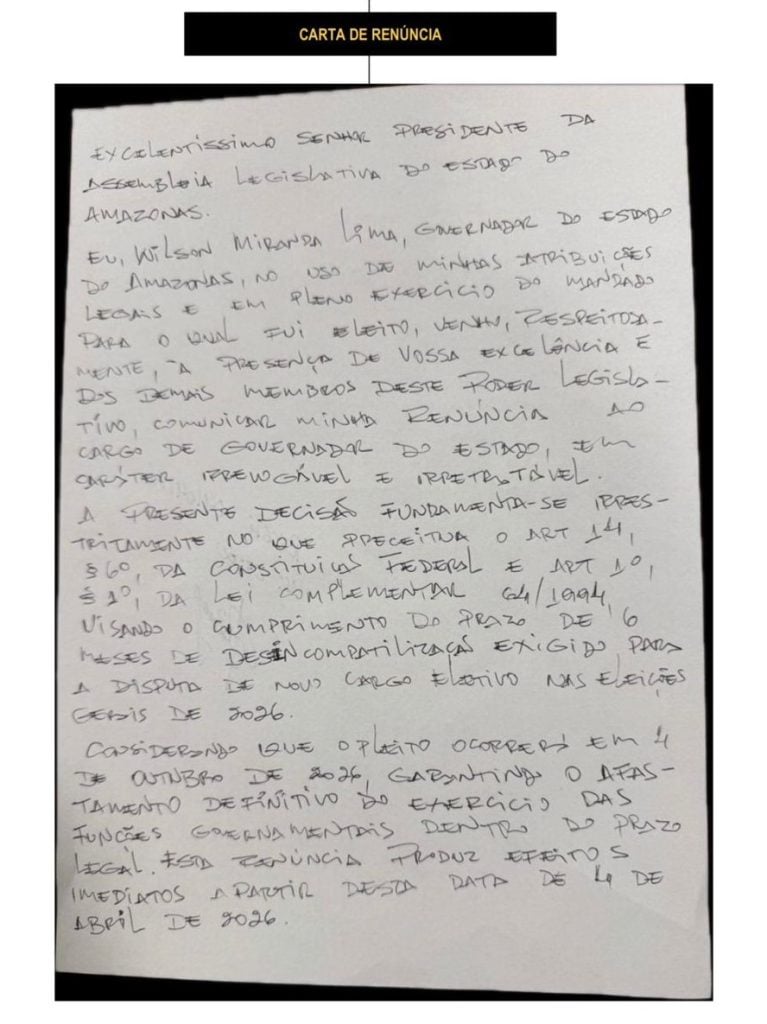 CARTA DE RENÚNCIA
EXCELENTÍSSIMO SENHOR PRESIDENTE DA
ASSEMBLEIA LEGISLATIVA DO ESTADO DO
AMAZONAS.
EU, WILSON MIRANDA LIMA, GOVERNADOR DO ESTADO
DO AMAZONAS, NO USO DE MINHAS ATRIBUIÇÕES
LEGAIS E EM PLENO EXERCÍCIO DO MANDADO
PARA O QUAL FUI ELEITO, VENHO, RESPEITOSA-
MENTE, À PRESENÇA DE VOSSA EXCELÊNCIA E
DOS DEMAIS MEMBROS DESTE PODER LEGISLA-
TIVO, COMUNICAR MINHA RENÚNCIA AO
CARGO DE GOVERNADOR DO ESTADO, EM
CARÁTER IRREVOGÁVEL E IRRETRATÁVEL.
A PRESENTE DECISÃO FUNDAMENTA-SE IRRES-
TRITAMENTE NO QUE PRECEITUA O ART 14,
§ 6º, DA CONSTITUIÇÃO FEDERAL E ART 1º,
§ 1º, DA LEI COMPLEMENTAR 64/1994,
VISANDO O CUMPRIMENTO DO PRAZO DE 6
MESES DE DESINCOMPATILIZAÇÃO EXIGIDO PARA
A DISPUTA DE NOVO CARGO ELETIVO NAS ELEIÇÕES
GERAIS DE 2026.
CONSIDERANDO QUE O PLEITO OCORRERÁ EM 4
DE OUTUBRO DE 2026, GARANTINDO O AFAS-
TAMENTO DEFINITIVO DO EXERCÍCIO DAS
FUNÇÕES GOVERNAMENTAIS DENTRO DO PRAZO
LEGAL. ESTA RENÚNCIA PRODUZ EFEITOS
IMEDIATOS A PARTIR DESTA DATA DE 4 DE
ABRIL DE 2026.